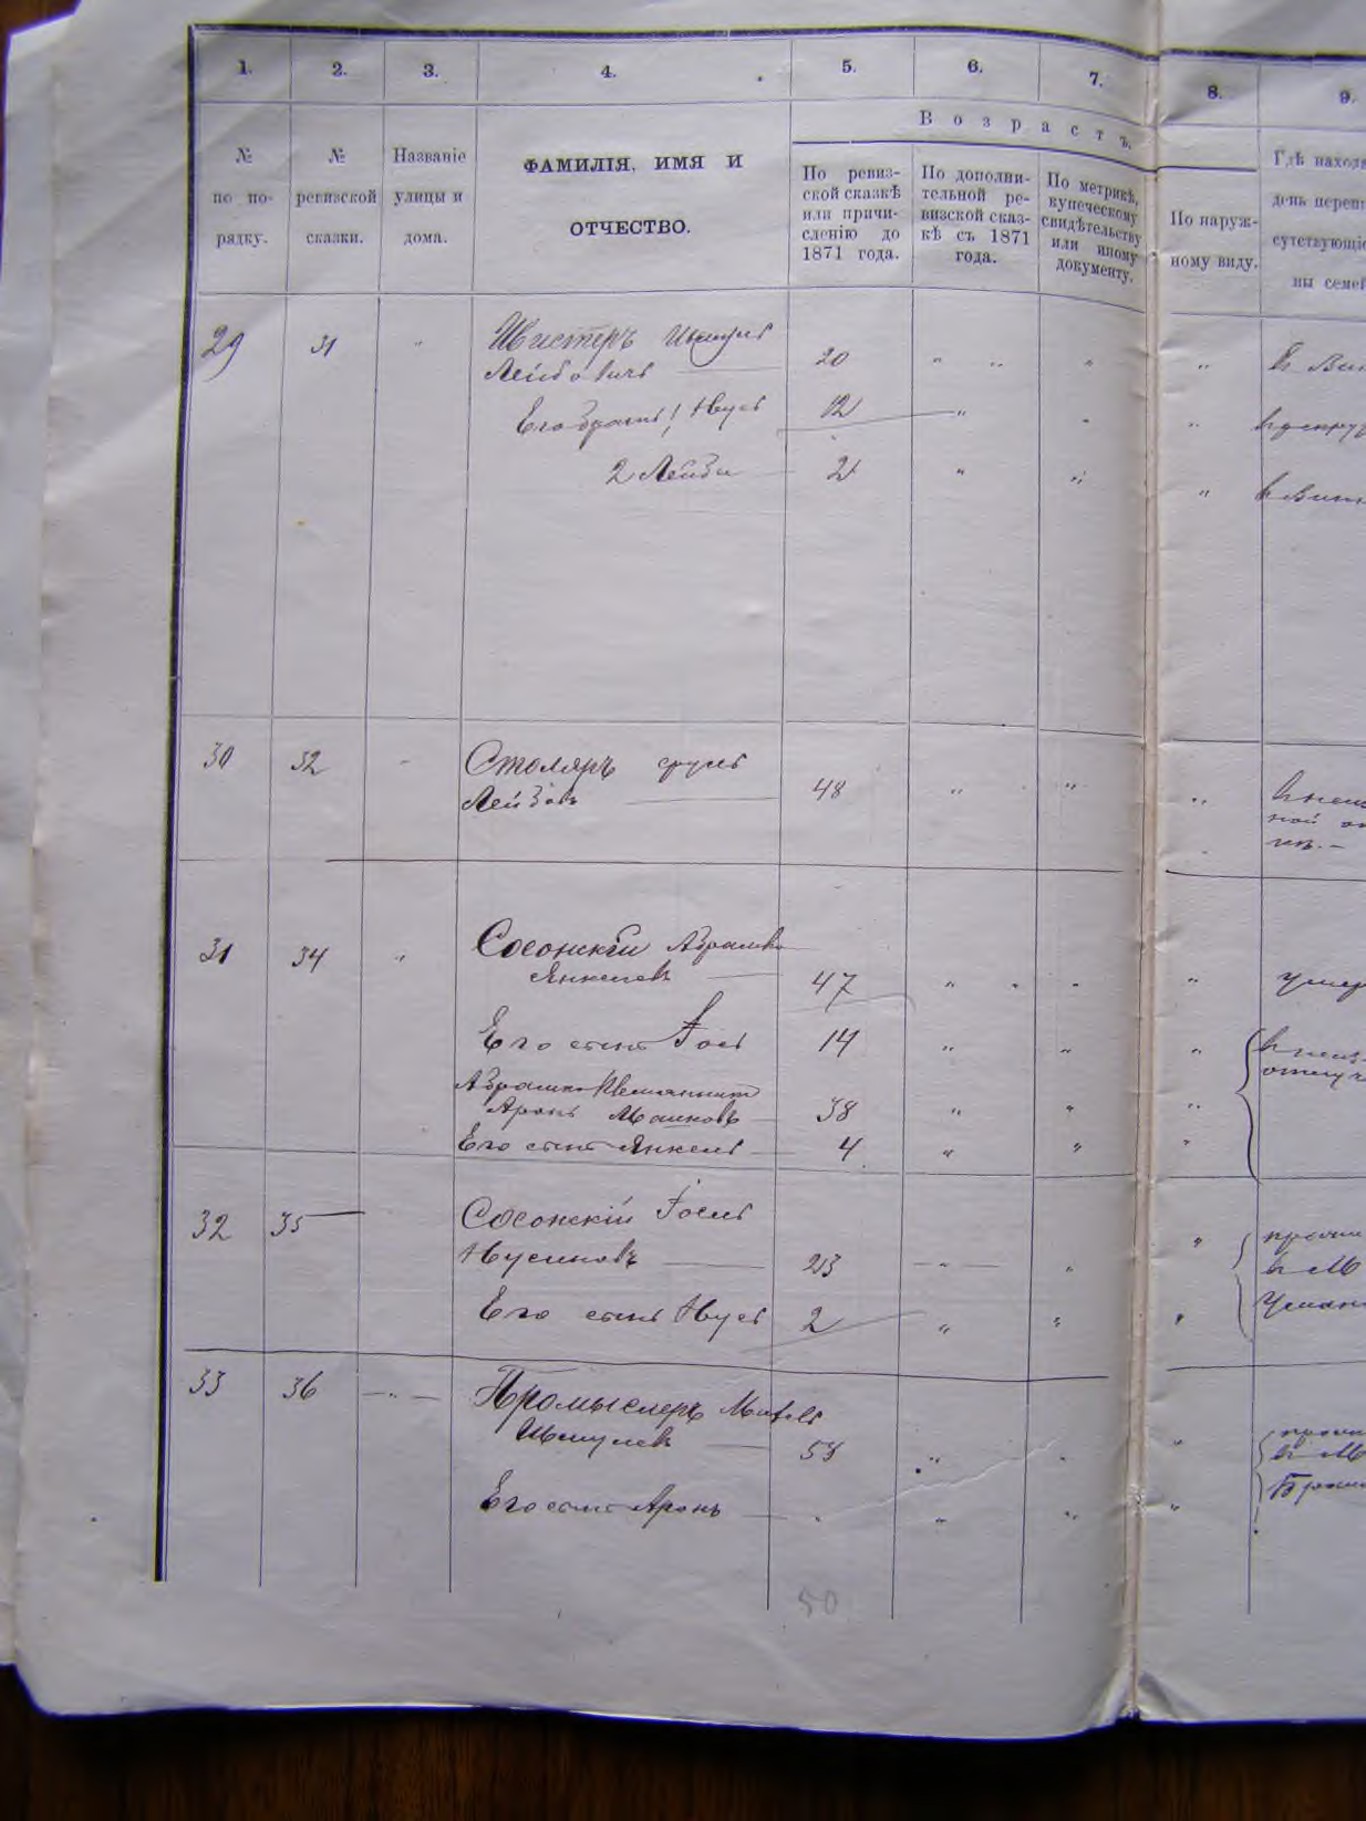 1. 2. 3. 4. 5. 6. 7. 8. 9.
Возрастъ.
№ по по-рядку.
№ ревизской сказки.
Названіе улицы и дома.
ФАМИЛІЯ, ИМЯ И
ОТЧЕСТВО.
По ревиз-
ской сказкѣ
или причи-
сленію до
1871 года.
По дополни-
тельной ре-
визской сказ-
кѣ съ 1871
года.
По метрикѣ,
купеческому
свидѣтельству
или иному
документу.
По наруж-
ному виду.
Гдѣ наход
день переп
сутствующі
ны семе
29 31 "
Лейбовичъ 20 " " " "
Его братья 1 Нусъ 12 " " "
2 Лейзи 2 " " "
30 32 " Столяръ Сруль
Лейзовъ 48 " " "
ной о
31 34 " Сосонскій Абрамко
Янкелевъ 47 " " " " умер
Его сынъ Іось 14 " " "
Абрамки племянникъ
Аронъ Машковъ 38 " " "
Его сынъ Янкель 4 " " "
32 35 Сосонскій Іосель
Нусиновъ 23 " " "
в М
Его сынъ Нусъ 2 " " " Уман
33 36 " Промыслеръ
Шмулевъ 53 " " "
в М
Его сынъ Аронъ " " " "
50